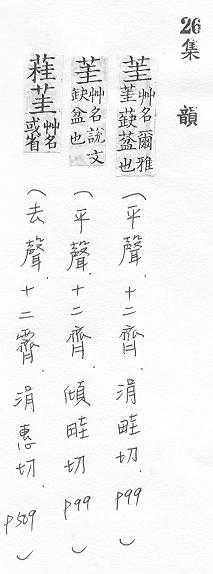 26集 韻
茥艸名爾雅茥蒛葐也(平聲.十二齊.涓畦切.P99)
茥艸名說文缺盆也(平聲.十二齊.傾畦切P99)
茥艸名或省(去聲.十二霽.涓惠切.P509)